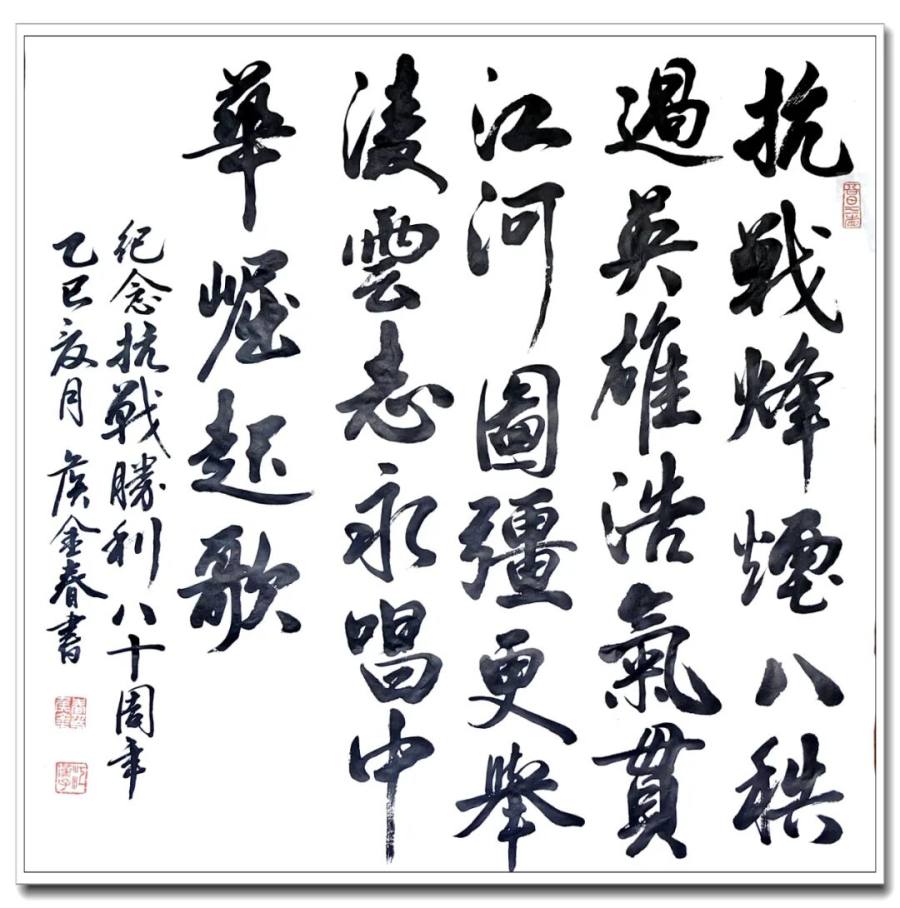 抗戰烽煙八秩
過英雄浩氣貫
江河圖疆更舉
淩雲志永唱中
華崛起歌
紀念抗戰勝利八十周年
乙巳夏月侯金春書